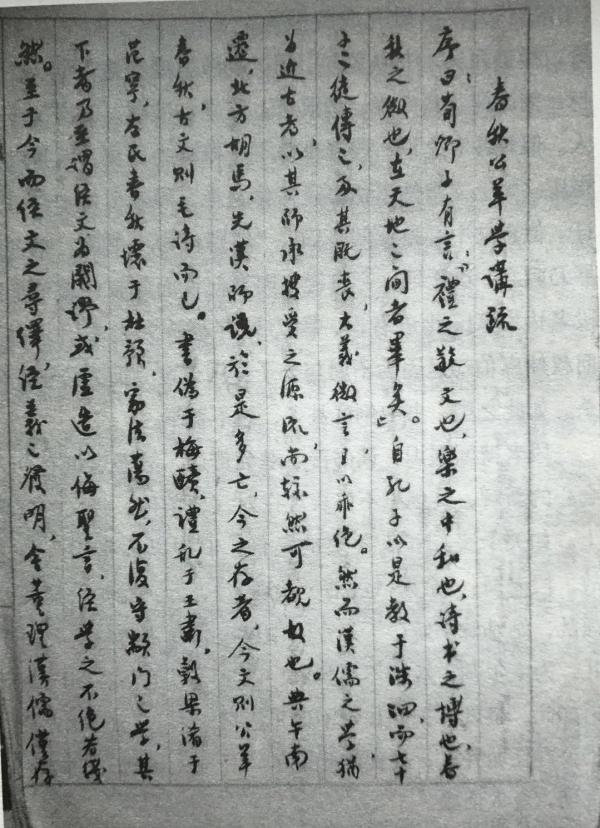 春秋公羊学講疏
序曰：荀卿子有言：「禮之敬文也，樂之中和也，詩书之博也，春
秋之微也，在天地之间者畢矣」。自孔子以是教于洙泗，而七十
子之徒傳之，及其既喪，大義微言，以乖絕。然而漢儒之学，猶
为近古者，以其師承授受之源流，尚猶然可覩故也。典午南
遷，北方胡馬，先漢師說，於是多亡，今之存者，今文則公羊
春秋，古文則毛诗而已。書偽于梅賾，禮乱于王肅，穀梁淆于
范寧，左氏春秋壞于杜預，家法蕩然，不復守顓门之学，其
下者乃至謂经文为闕谬，或虛造以侮聖言，经学之不绝若线
然。至于今而经文之尋繹，经義之發明，舍董理漢儒僅存